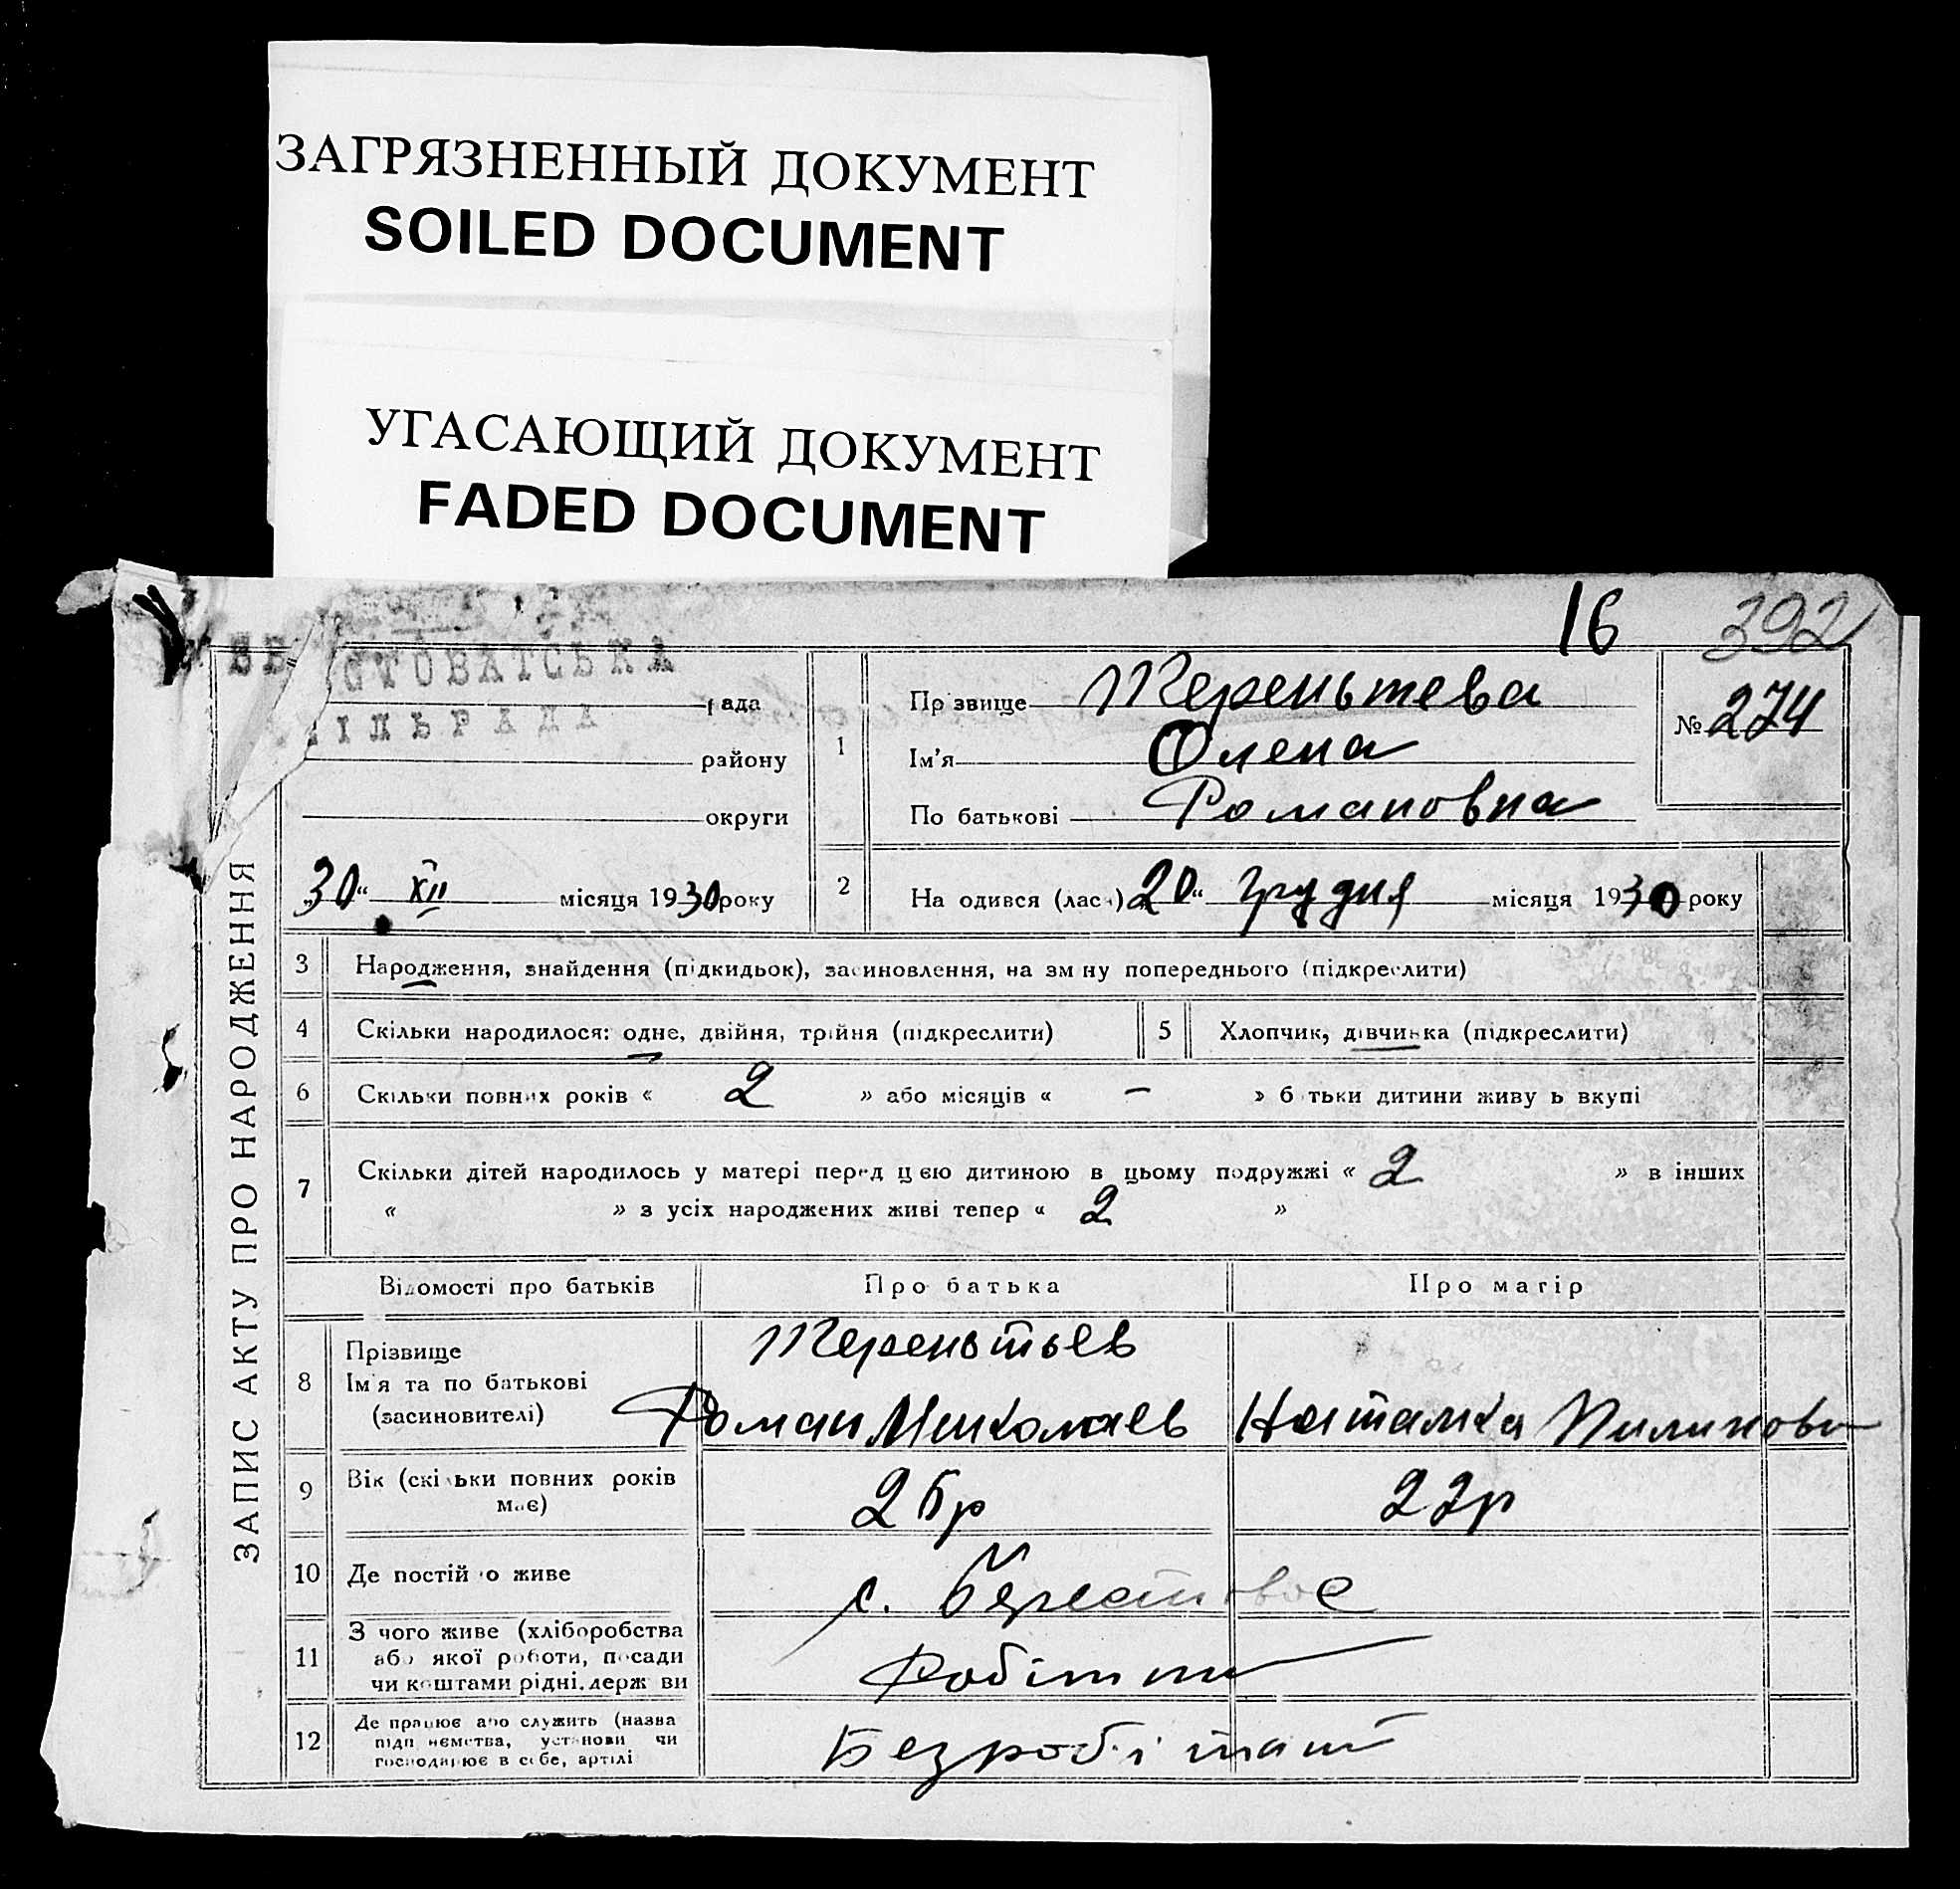 ЗАГРЯЗНЕННЫЙ ДОКУМЕНТ
SOILED DOCUMENT
УГАСАЮЩИЙ ДОКУМЕНТ
FADED DOCUMENT
16 392
СТОВАТСЬКА
рада
ІЛЬРАДА
району
округи
30 " XII місяця 1930 року
1
Пр звище Терентьева
Ім'я Олена
По батькові Романовна
№ 274
2 На одився (лас ) 20 " грудня місяця 1930 року
ЗАПИС АКТУ ПРО НАРОДЖЕННЯ
3 Народження, знайдення (підкидьок), засиновлення, на зм ну попереднього (підкреслити)
4 Скільки народилося: одне, двійня, трійня (підкреслити) 5 Хлопчик, дівчинка (підкреслити)
6 Скільки повних років « 2 » або місяців « - » б тьки дитини живу ь вкупі
7 Скільки дітей народилось у матері перед цією дитиною в цьому подружжі « 2 » в інших
« » з усіх народжених живі тепер « 2 »
Відомості про батьків Про батька Про матір
8 Прізвище
Ім'я та по батькові
(засиновителі)
Терентьев
Роман Миколаев Наталка
9 Вік (скільки повних років
має)
26р 22р
10 Де постій о живе с. Берестовое
11 З чого живе (хліборобства
або якої роботи, посади
чи коштами рідні, держ ви
Робітник
12 Де працює або служить (назва
підп иємства, установи чи
господарює в себе, артілі